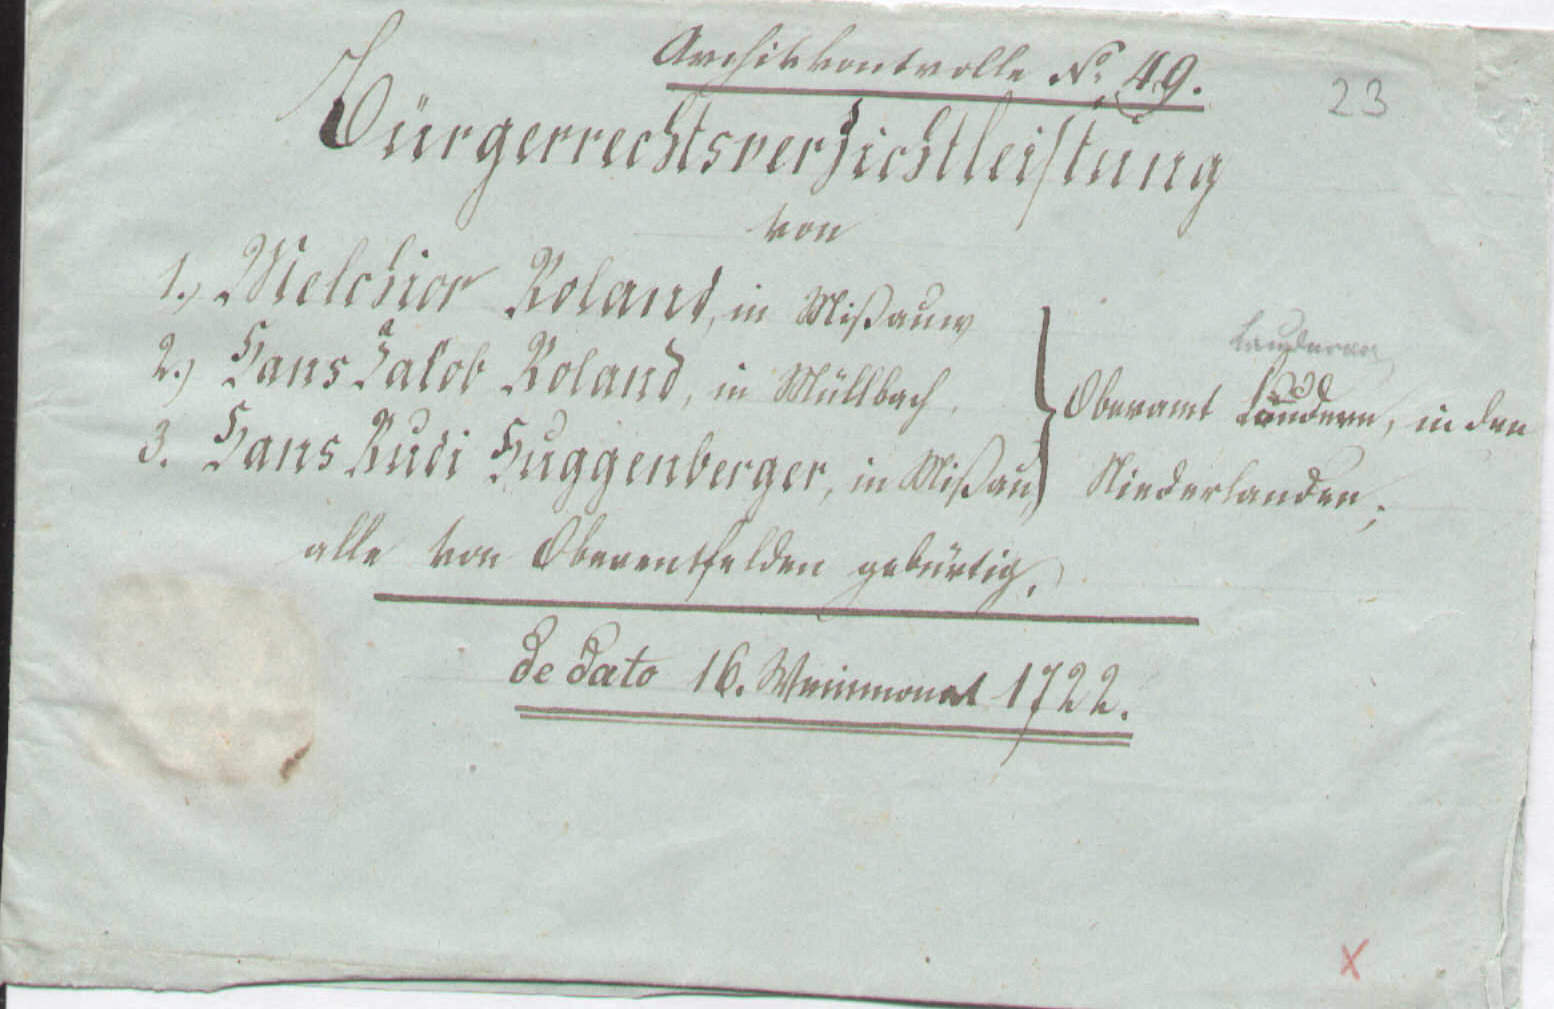 Archivkontrolle No. 49.
23
Bürgerrechtsverzichtleistung
von
1., Melchior Roland, in Mißauw
2.) Hans Jakob Roland, in Müllbach,
3. Hans Rudi Huggenberger, in Mißau,
Oberamt Landeren, in den
Niederlanden;
alle von Oberentfelden gebürtig.
de dato 16. Weinmonat 1722.
X